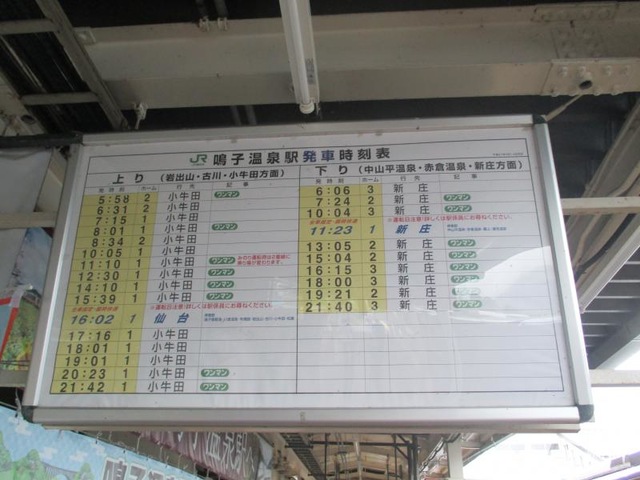 JR 鳴子温泉駅発車時刻表
上り(岩出山・古川・小牛田方面)
発時刻 ホーム 行先 記事
5:58 2 小牛田 ワンマン
6:31 2 小牛田
7:15 1 小牛田
8:01 1 小牛田 ワンマン
8:34 2 小牛田
10:05 1 小牛田
11:10 1 小牛田 ワンマン
12:30 1 小牛田 ワンマン
14:10 1 小牛田 ワンマン
15:39 1 小牛田 ワンマン
※運転日注意!詳しくは駅係員にお尋ねください。
16:02 1 仙台
17:16 1 小牛田
18:01 1 小牛田
19:01 1 小牛田
20:23 1 小牛田 ワンマン
21:42 1 小牛田 ワンマン
下り(中山平温泉・赤倉温泉・新庄方面)
発時刻 ホーム 行先 記事
6:06 3 新庄
7:24 2 新庄 ワンマン
10:04 3 新庄 ワンマン
※運転日注意!詳しくは駅係員にお尋ねください。
11:23 1 新庄
13:05 2 新庄 ワンマン
15:04 2 新庄 ワンマン
16:15 3 新庄 ワンマン
18:00 3 新庄 ワンマン
19:21 2 新庄 ワンマン
21:40 3 新庄 ワンマン